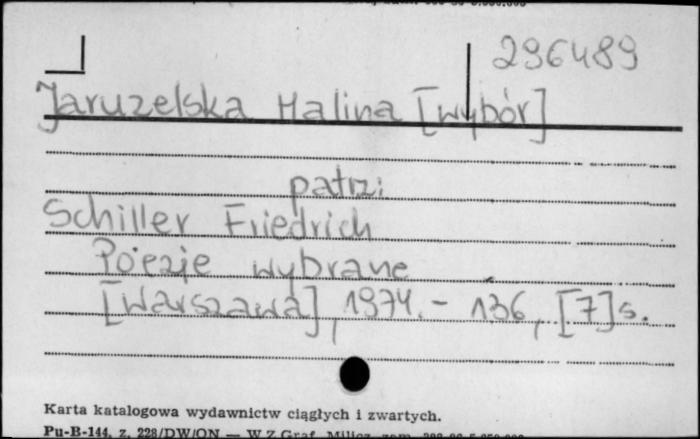 296489
Jaruzelska Halina [wybór]
patrzi
Schiller Friedrich
Poezje wybrane
[Warszawa], 1974. - 136, [7] s.
Karta katalogowa wydawnictw ciągłych i zwartych.
Pu-B-144, z. 228/DW/ON — W.Z.Graf. Milicz, zam.